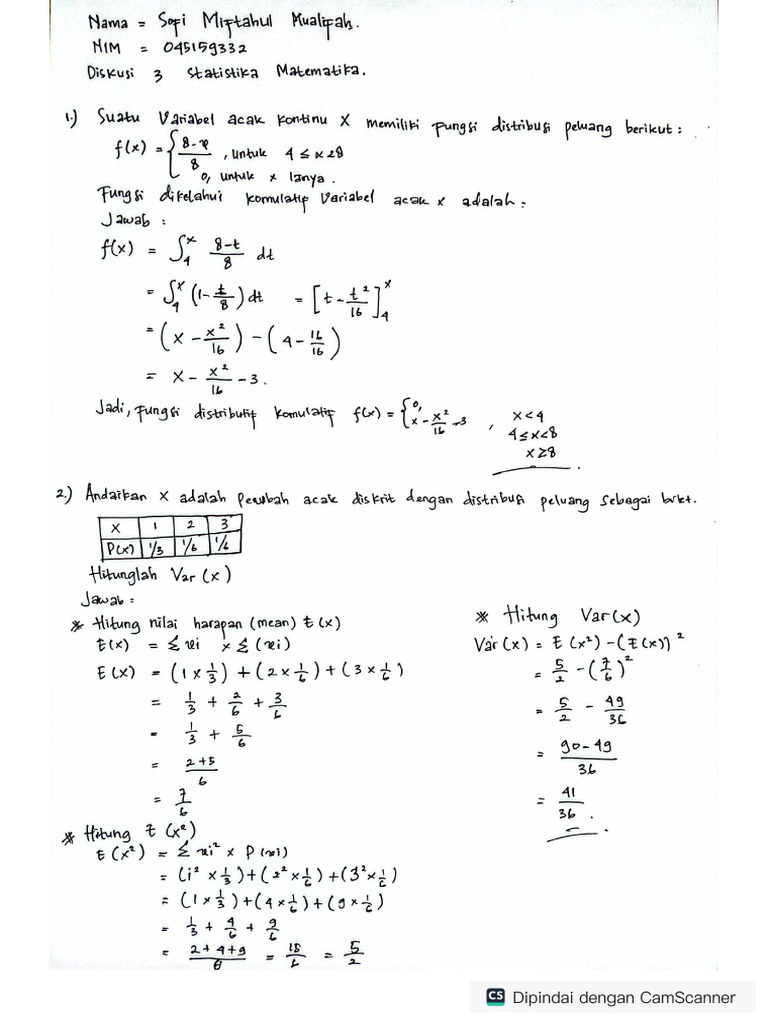 Nama = Sopi Miftahul Mualifah.
NIM = 045159332
Diskusi 3 Statistika Matematika.
1.) Suatu Variabel acak kontinu X memiliki fungsi distribusi peluang berikut :
f(x) = { 8-x/8 , untuk 4 ≤ x ≥ 8
0, untuk x lanya.
Fungsi diketahui komulatif Variabel acak x adalah :
Jawab :
f(x) = ∫₄ˣ 8-t/8 dt
= ∫₄ˣ (1 - t/8) dt = [t - t²/16]₄ˣ
= (x - x²/16) - (4 - 16/16)
= x - x²/16 - 3.
Jadi, fungsi distributif komulatif f(x) = { 0, x < 4
x - x²/16 - 3 , 4 ≤ x < 8
x ≥ 8
2.) Andaikan X adalah perubah acak diskrit dengan distribusi peluang sebagai brkt.
X 1 2 3
P(x) 1/3 1/6 1/6
Hitunglah Var (x)
Jawab :
* Hitung nilai harapan (mean) E(x)
E(x) = Σ xi × Σ (xi)
E(x) = (1 × 1/3) + (2 × 1/6) + (3 × 1/6)
= 1/3 + 2/6 + 3/6
= 1/3 + 5/6
= 2+5/6
= 7/6
* Hitung E (x²)
E(x²) = Σ xi² × P(xi)
= (1² × 1/3) + (2² × 1/6) + (3² × 1/6)
= (1 × 1/3) + (4 × 1/6) + (9 × 1/6)
= 1/3 + 4/6 + 9/6
= 2+4+9/6 = 15/6 = 5/2
* Hitung Var(x)
Var (x) = E (x²) - (E(x))²
= 5/2 - (7/6)²
= 5/2 - 49/36
= 90-49/36
= 41/36.
CS Dipindai dengan CamScanner